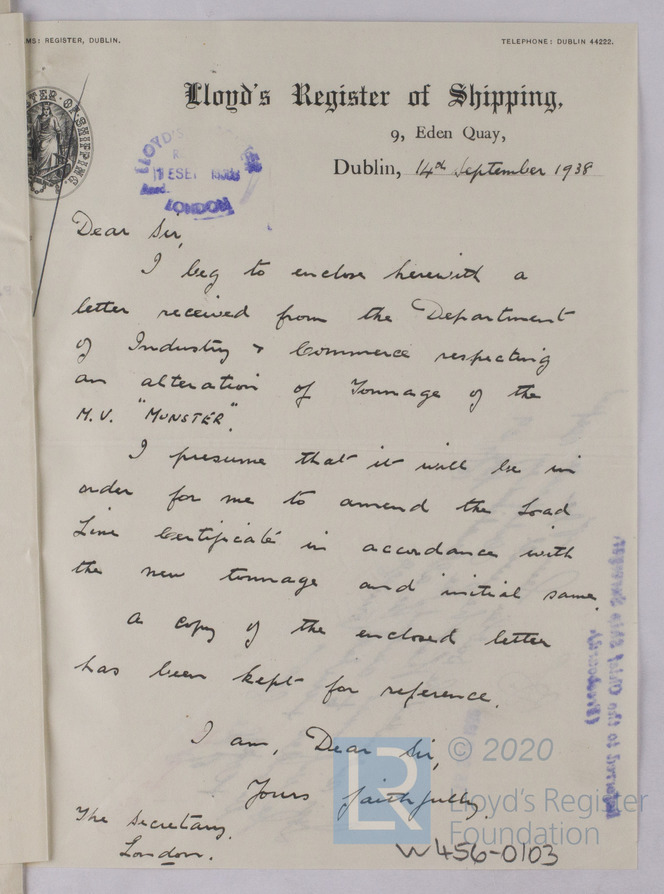 MS: REGISTER, DUBLIN.
TELEPHONE: DUBLIN 44222.
Lloyd's Register of Shipping,
9, Eden Quay,
Dublin, 14th September 1938
LLOYD'S
Recd.
LONDON
Dear Sir,
I beg to enclose herewith a
letter received from the Department
of Industry & Commerce respecting
an alteration of Tonnage of the
M.V. "MUNSTER".
I presume that it will be in
order for me to amend the Load
Line Certificate in accordance with
the new tonnage and initial same.
A copy of the enclosed letter
has been kept for reference.
I am, Dear Sir,
Yours faithfully.
The Secretary.
London.
© 2020
LR
Lloyd's Register
Foundation
W456-0103